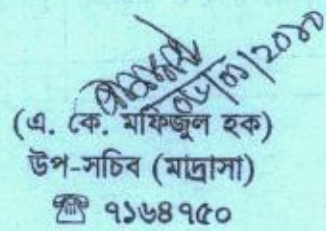 ০৮/০১/২০১০
(এ. কে. মফিজুল হক)
উপ-সচিব (মাদ্রাসা)
☎ ৭১৬৪৭৫০